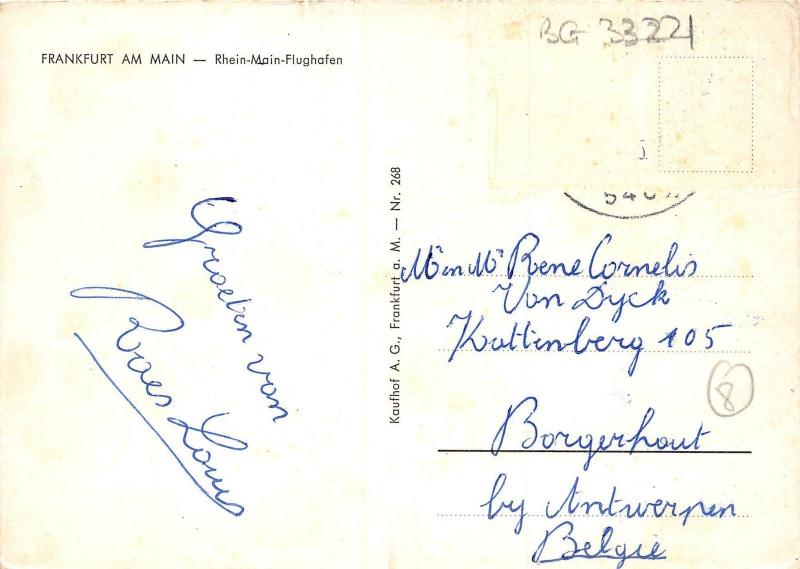 BG 33221
FRANKFURT AM MAIN — Rhein-Main-Flughafen
Groeten van
Roaes Louis
Kaufhof A. G., Frankfurt a. M. — Nr. 268
Mr en Mr Rene Cornelis
Van Dyck
Kattenberg 105
Borgerhout
by Antwerpen
Belgie
8